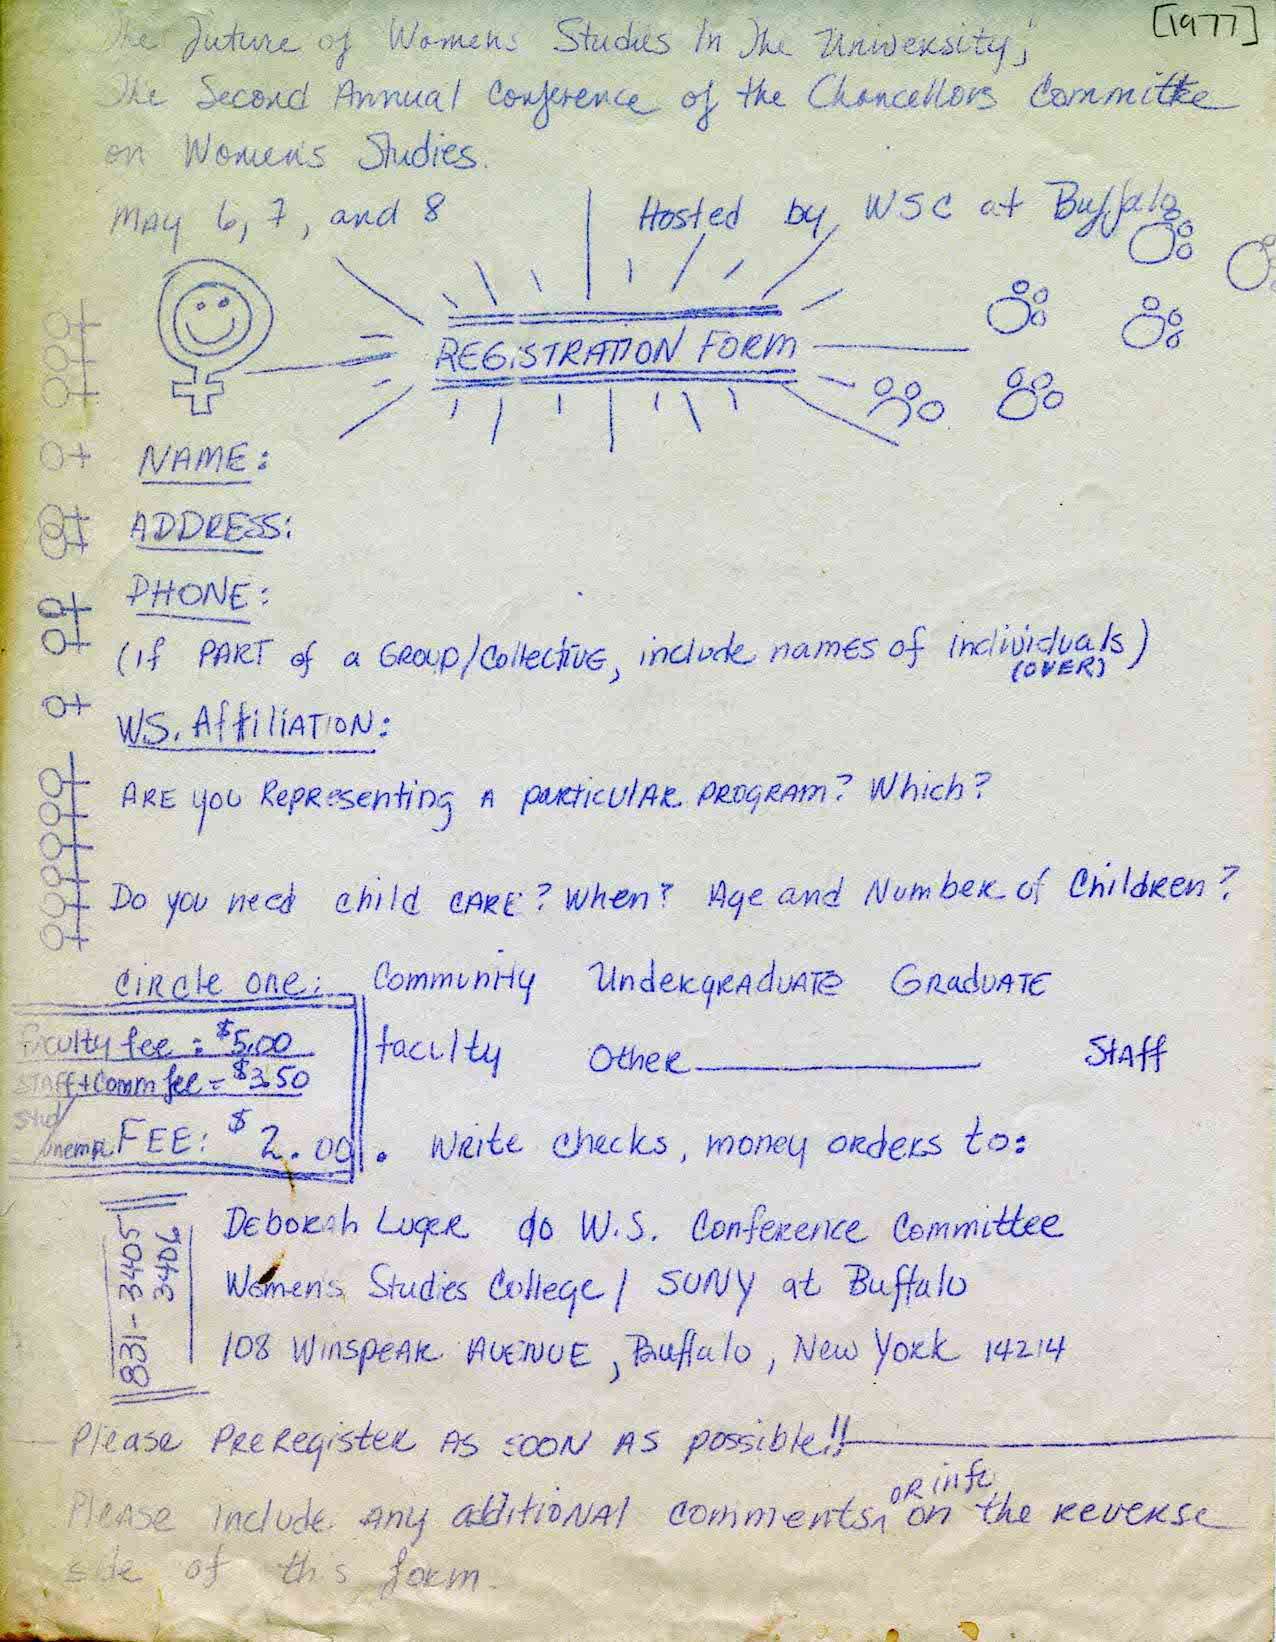 [1977]
The Future of Womens Studies In The University;
The Second Annual Conference of the Chancellors Committee
on Women's Studies.
May 6, 7, and 8 Hosted by WSC at Buffalo
REGISTRATION FORM
NAME:
ADDRESS:
PHONE:
(if PART of a GROUP/Collective, include names of individuals)
(OVER)
W.S. Affiliation:
Are you Representing a particular program? Which?
Do you need child care? When? Age and Number of Children?
Circle one: Community Undergraduate Graduate
faculty Other Staff
Faculty fee = $5.00
Staff + Comm fee = $3.50
Stud/
unempl. FEE: $2.00. Write checks, money orders to:
831-3405
3406
Deborah Luger c/o W.S. Conference Committee
Women's Studies College / SUNY at Buffalo
108 Winspear Avenue, Buffalo, New York 14214
Please Preregister as soon as possible!!
Please include any additional comments, or info on the reverse
side of this form.